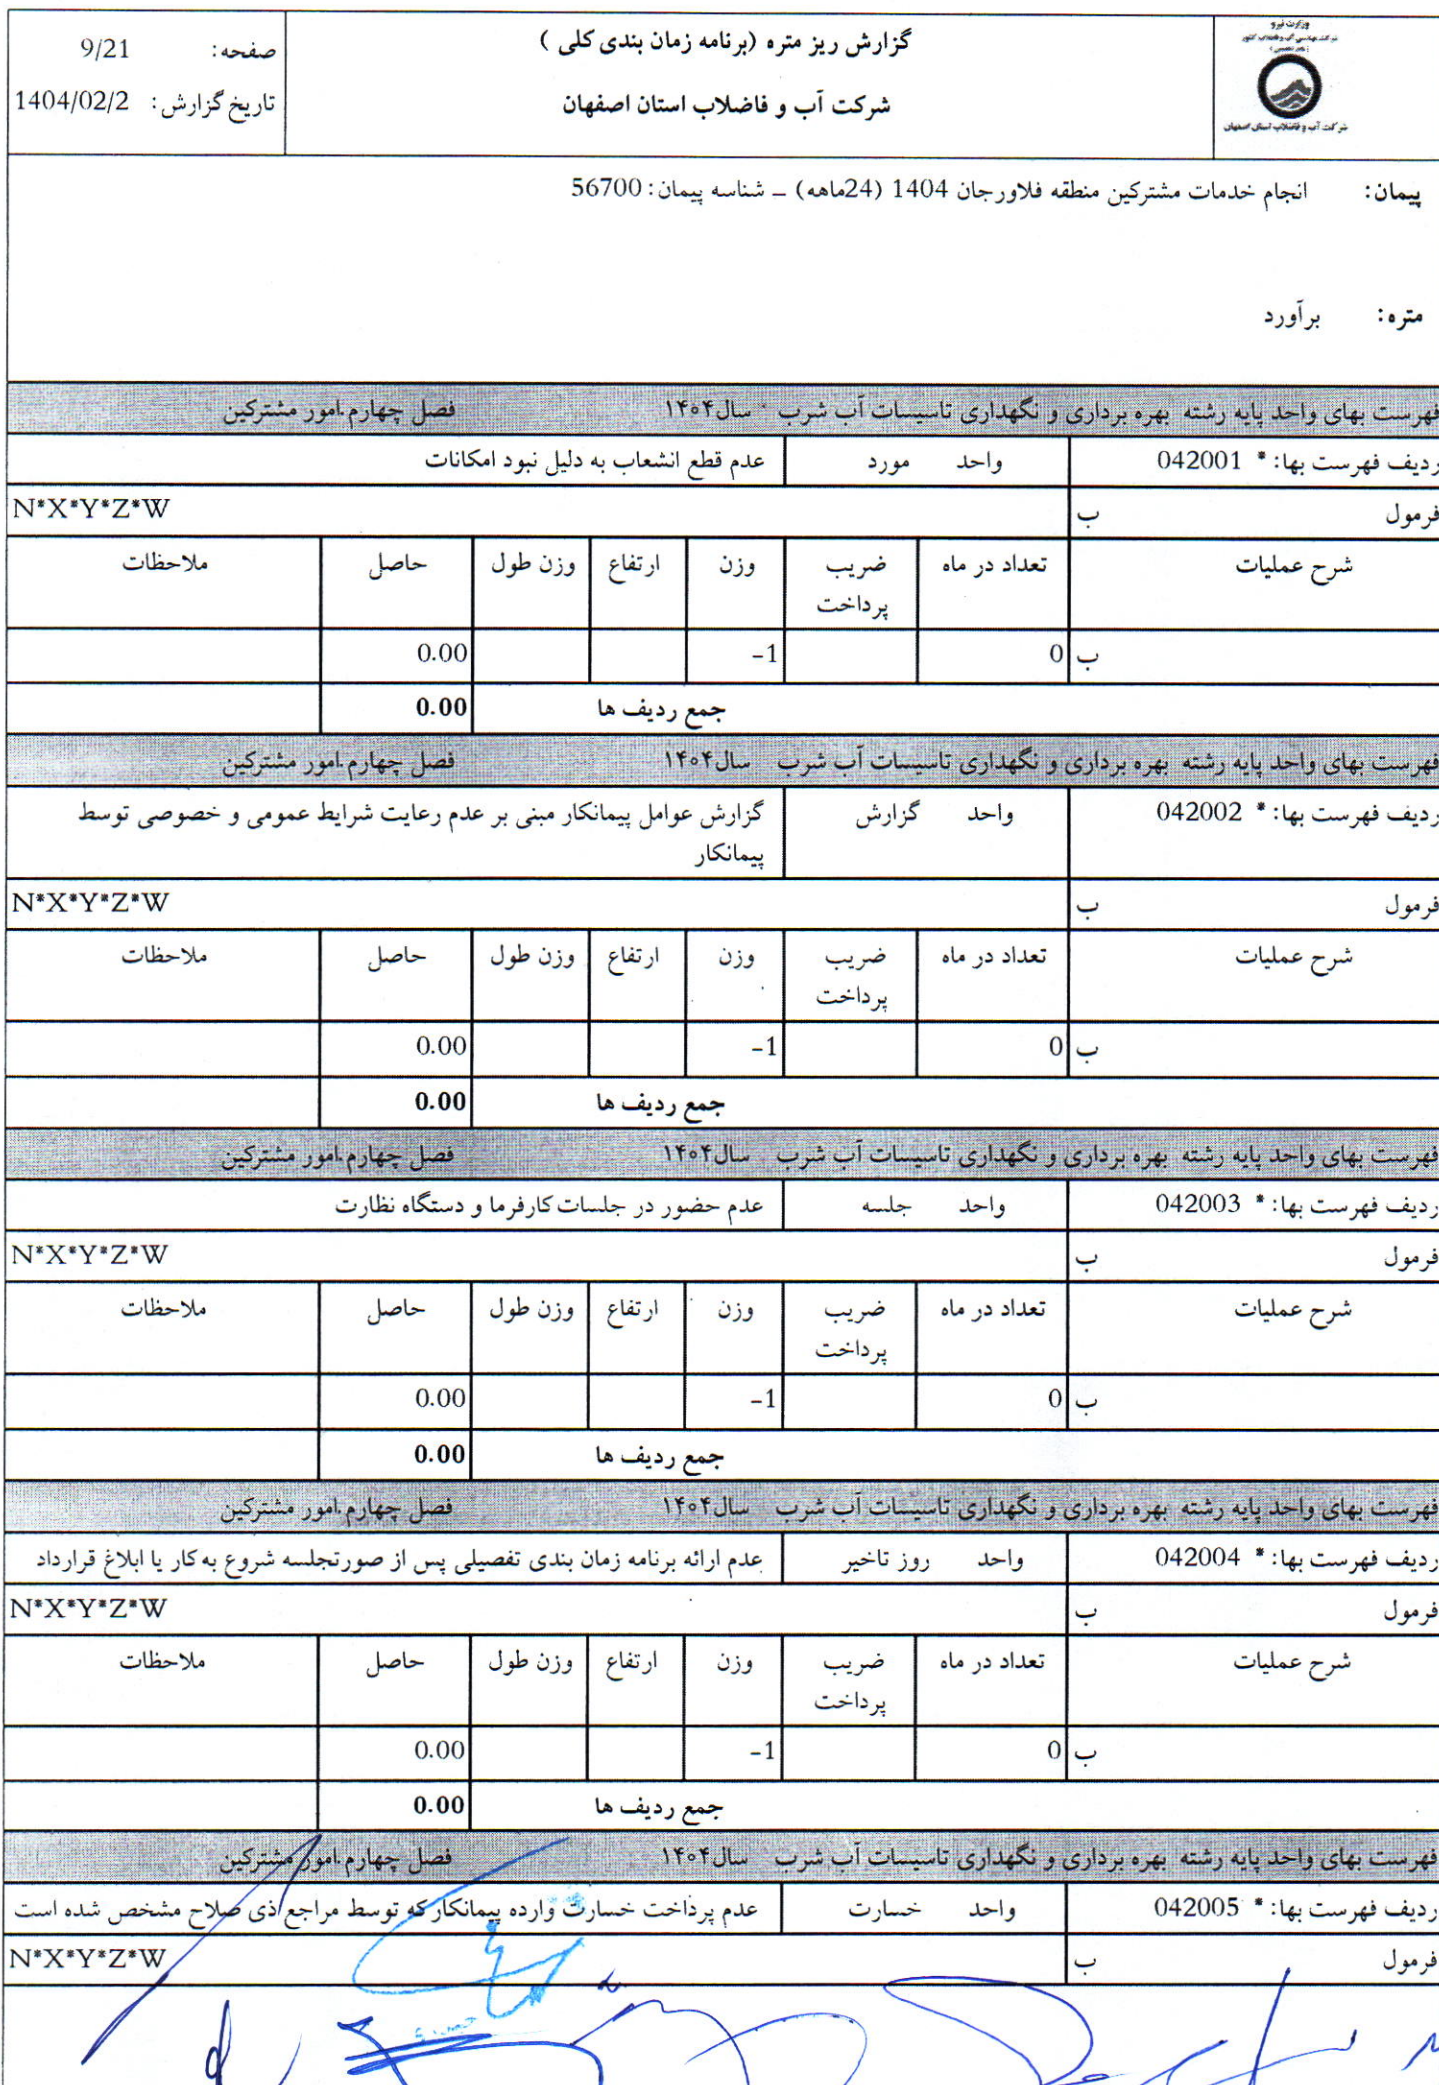 وزارت نیرو
شرکت مهندسی آب و فاضلاب کشور
شرکت آب و فاضلاب استان اصفهان
گزارش ریز متره (برنامه زمان بندی کلی )
شرکت آب و فاضلاب استان اصفهان
صفحه: 9/21
تاریخ گزارش: 1404/02/2
پیمان: انجام خدمات مشترکین منطقه فلاورجان 1404 (24ماهه) – شناسه پیمان: 56700
متره: برآورد
فهرست بهای واحد پایه رشته بهره برداری و نگهداری تاسیسات آب شرب سال۱۴۰۴ فصل چهارم.امور مشترکین
ردیف فهرست بها: * 042001 واحد مورد عدم قطع انشعاب به دلیل نبود امکانات
فرمول ب N*X*Y*Z*W
شرح عملیات تعداد در ماه ضریب پرداخت وزن ارتفاع وزن طول حاصل ملاحظات
ب 0 -1 0.00
جمع ردیف ها 0.00
فهرست بهای واحد پایه رشته بهره برداری و نگهداری تاسیسات آب شرب سال۱۴۰۴ فصل چهارم.امور مشترکین
ردیف فهرست بها: * 042002 واحد گزارش گزارش عوامل پیمانکار مبنی بر عدم رعایت شرایط عمومی و خصوصی توسط
پیمانکار
فرمول ب N*X*Y*Z*W
شرح عملیات تعداد در ماه ضریب پرداخت وزن ارتفاع وزن طول حاصل ملاحظات
ب 0 -1 0.00
جمع ردیف ها 0.00
فهرست بهای واحد پایه رشته بهره برداری و نگهداری تاسیسات آب شرب سال۱۴۰۴ فصل چهارم.امور مشترکین
ردیف فهرست بها: * 042003 واحد جلسه عدم حضور در جلسات کارفرما و دستگاه نظارت
فرمول ب N*X*Y*Z*W
شرح عملیات تعداد در ماه ضریب پرداخت وزن ارتفاع وزن طول حاصل ملاحظات
ب 0 -1 0.00
جمع ردیف ها 0.00
فهرست بهای واحد پایه رشته بهره برداری و نگهداری تاسیسات آب شرب سال۱۴۰۴ فصل چهارم.امور مشترکین
ردیف فهرست بها: * 042004 واحد روز تاخیر عدم ارائه برنامه زمان بندی تفصیلی پس از صورتجلسه شروع به کار یا ابلاغ قرارداد
فرمول ب N*X*Y*Z*W
شرح عملیات تعداد در ماه ضریب پرداخت وزن ارتفاع وزن طول حاصل ملاحظات
ب 0 -1 0.00
جمع ردیف ها 0.00
فهرست بهای واحد پایه رشته بهره برداری و نگهداری تاسیسات آب شرب سال۱۴۰۴ فصل چهارم.امور مشترکین
ردیف فهرست بها: * 042005 واحد خسارت عدم پرداخت خسارت وارده پیمانکار که توسط مراجع ذی صلاح مشخص شده است
فرمول ب N*X*Y*Z*W